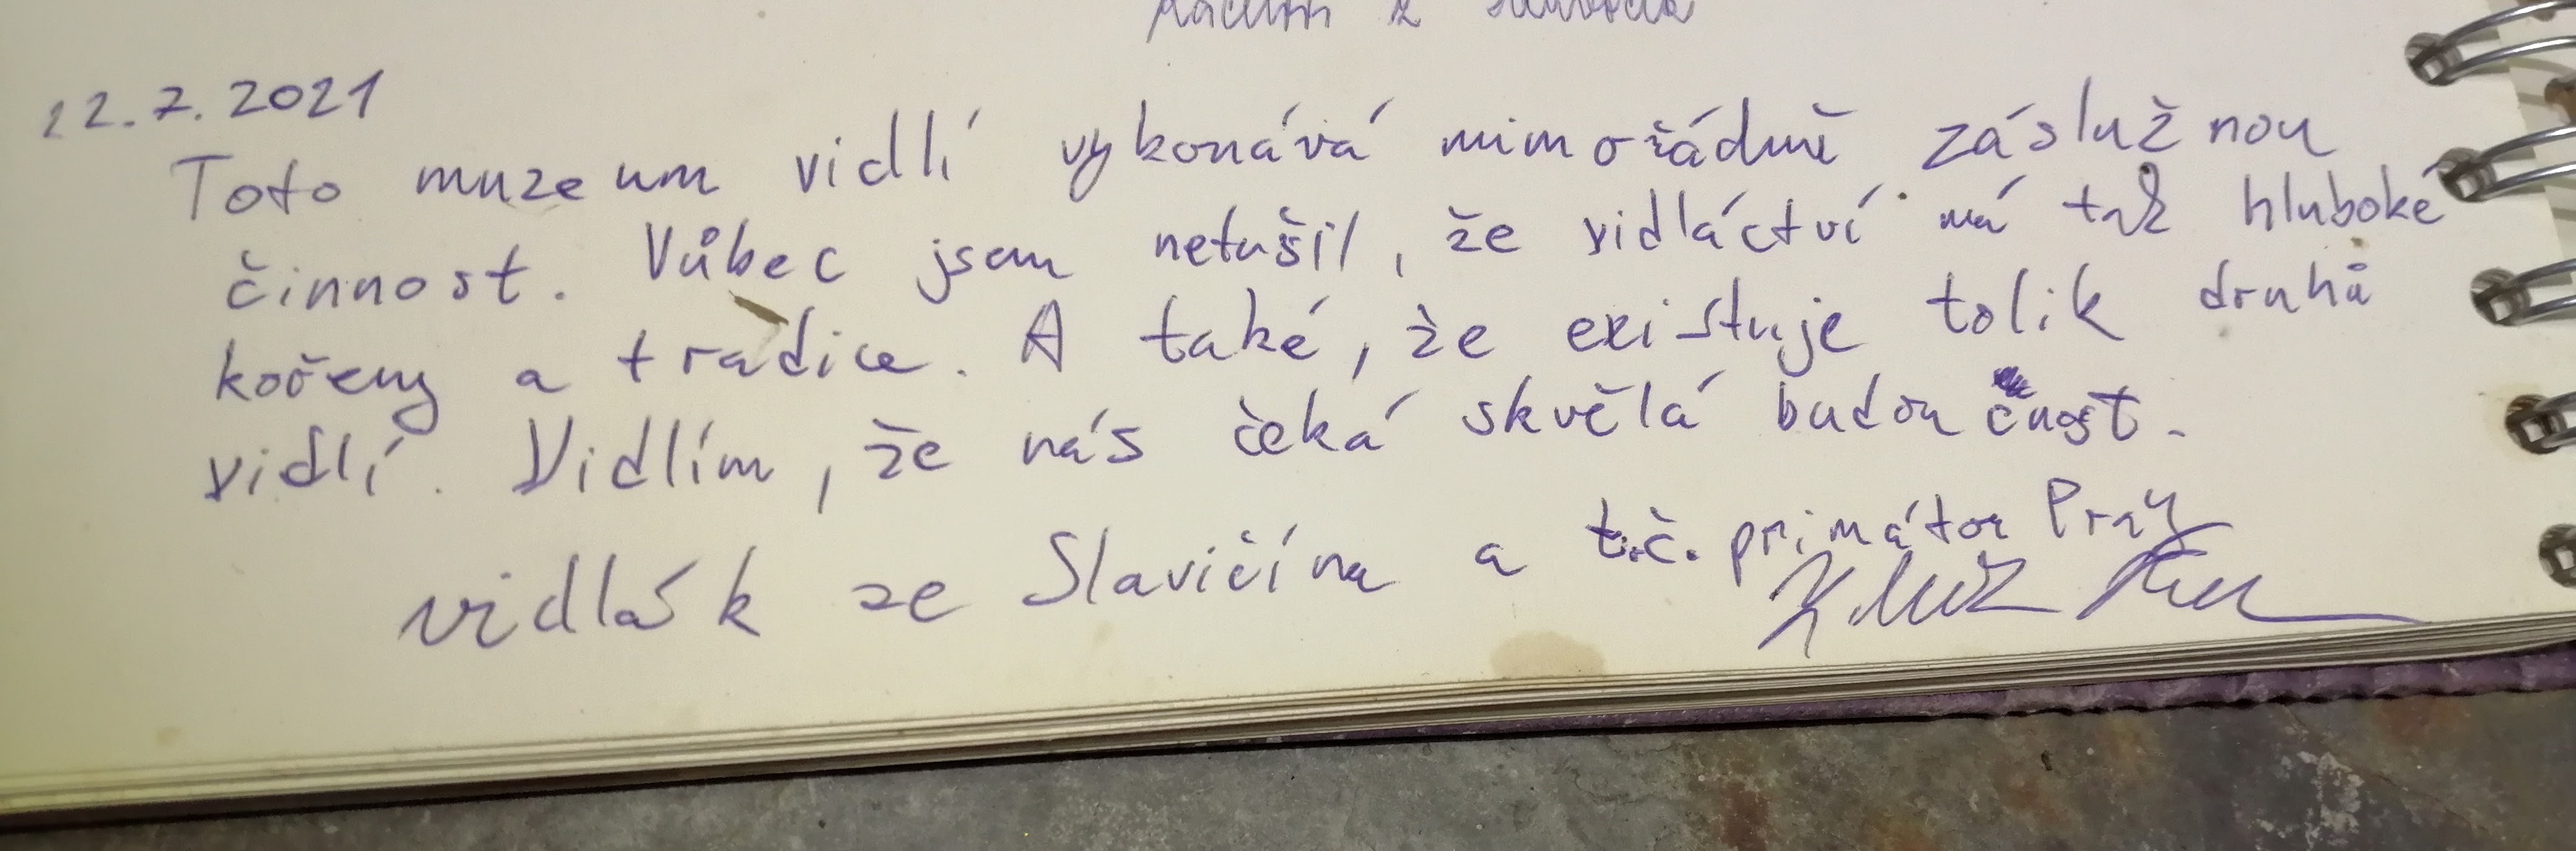 12.7.2021
Toto muzeum vidlí vykonává mimořádně záslužnou
činnost. Vůbec jsem netušil, že vidláctví má tak hluboké
kořeny a tradice. A také, že existuje tolik druhů
vidlí. Vidlím, že nás čeká skvělá budoučnost.
vidlák ze Slavičína a t.č. primátor Prahy